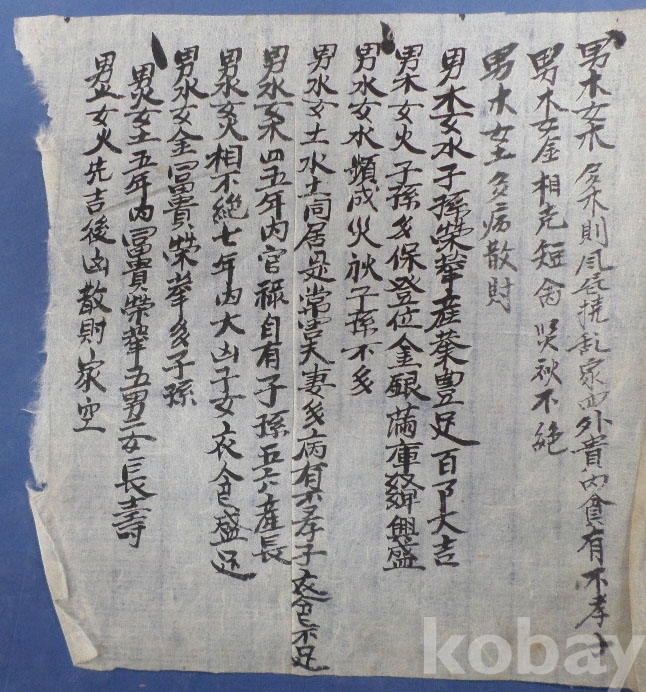 男木女木 多禾則風 撓乱家西外貴内貧有不孝子
男木女金相克短命災殃不絶
男木女土多病散財
男木女水子孫榮華産業豊足百事大吉
男木女火子孫多保登位金銀滿庫奴婢興盛
男水女水頻成災殃子孫不多
男水女土水土同居是常 夫妻多病有不孝子衣食不足
男水女木四五年内官禄自有子孫五六産長
男水女火相不絶七年内大凶子女衣食盛足
男水女金冨貴榮華多子孫
男火女土五年内冨貴榮華五男二女長壽
男火女火先吉後凶散財家空
kobay